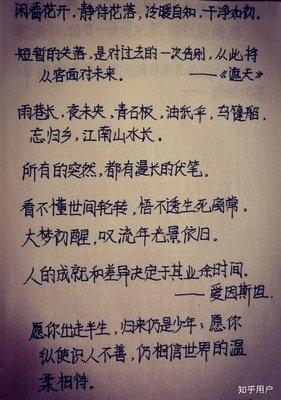 闲看花开，静待花落，冷暖自知，干净如初。
短暂的失落，是对过去的一次告别，从此，将
从容面对未来。 ——《遮天》
雨巷长，夜未央，青石板，油纸伞，乌篷船，
忘归乡，江南山水长。
所有的突然，都有漫长的伏笔。
看不懂世间轮转，悟不透生死离常。
大梦初醒，叹流年光景依旧。
人的成就和差异决定于其业余时间。
——爱因斯坦.
愿你出走半生，归来仍是少年；愿你
纵使识人不善，仍相信世界的温
柔相待。
知乎用户